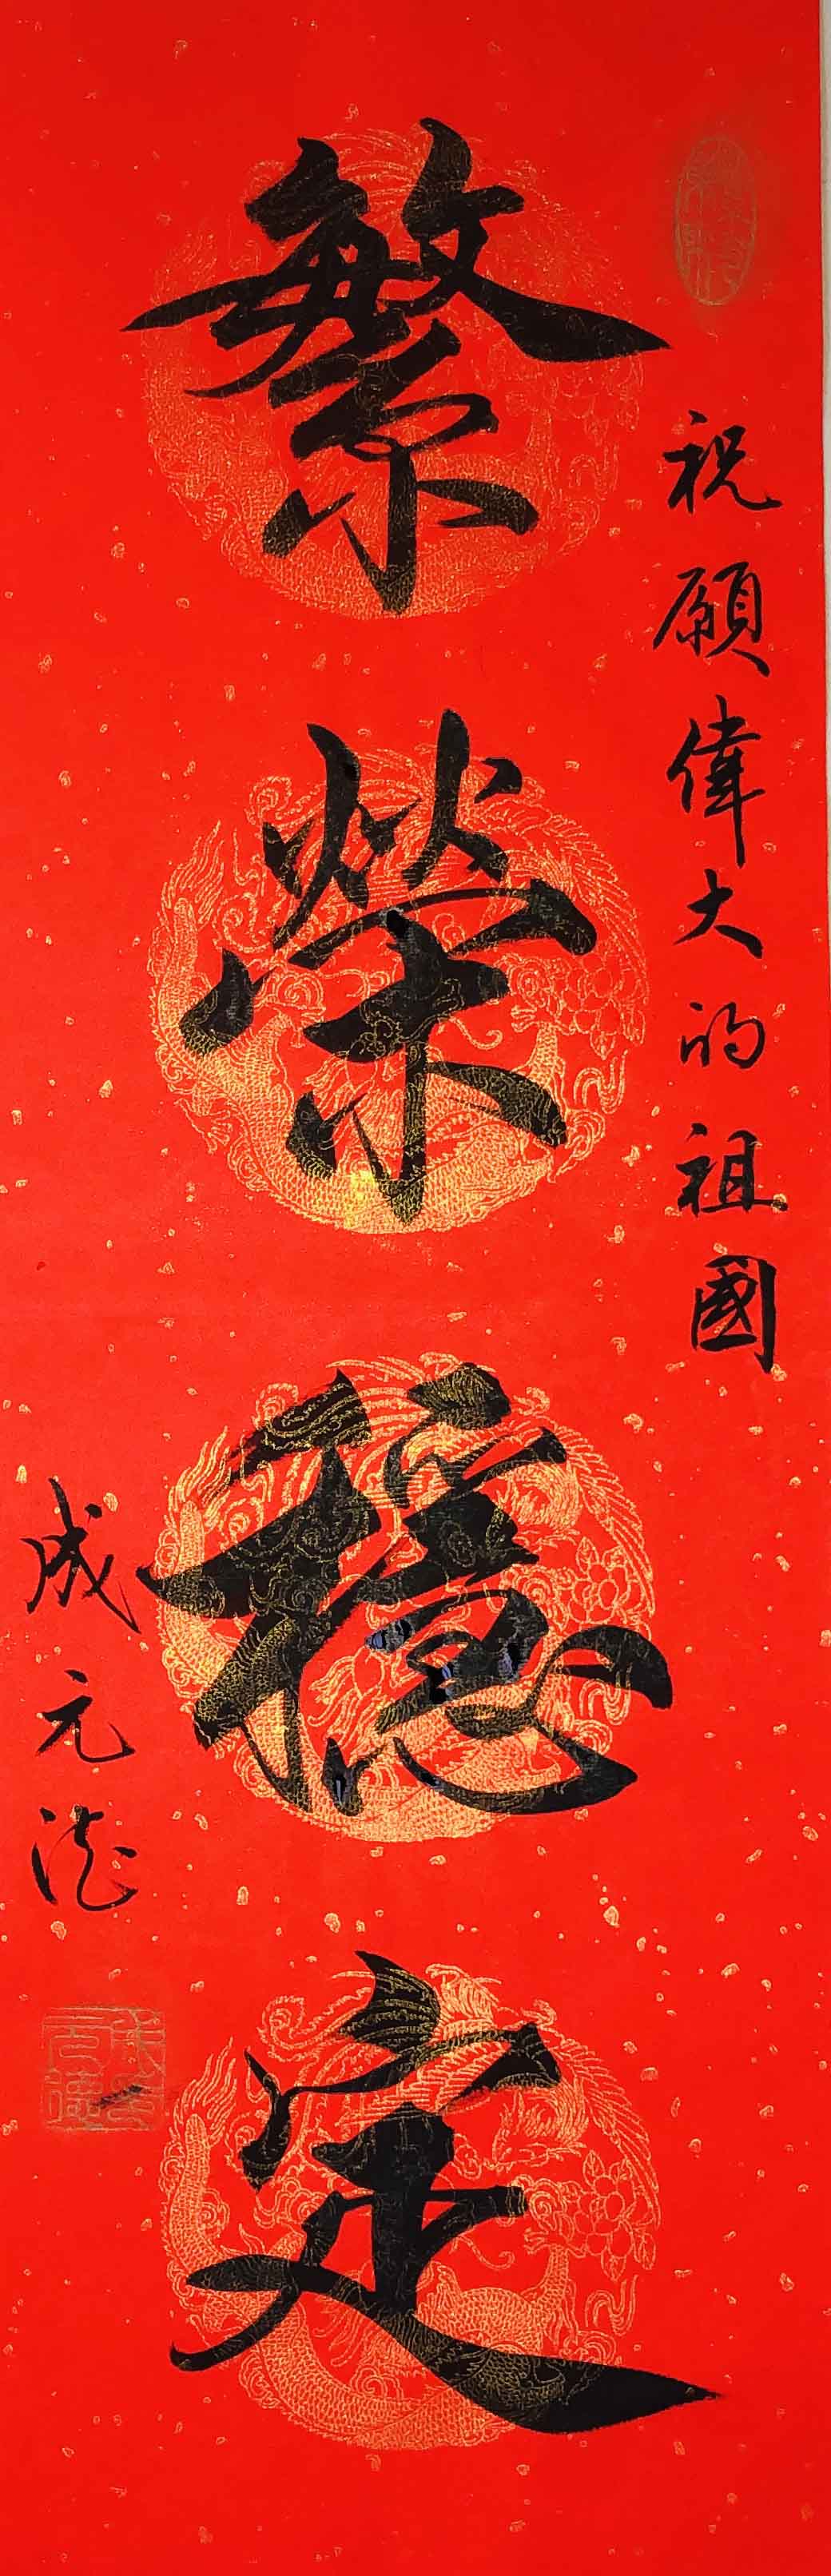 祝願偉大的祖國
繁榮穩定
成元德